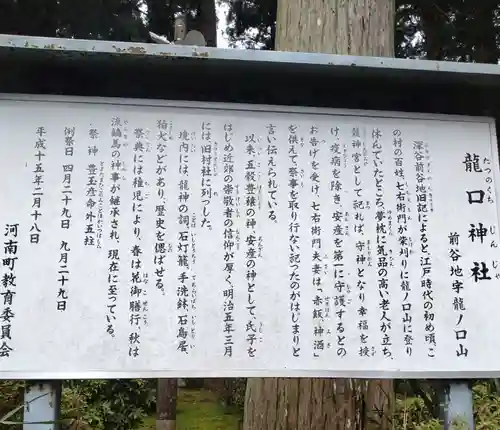 龍口神社
たつのくち じんじゃ
前谷地字龍ノ口山
深谷前谷地旧記によると江戸時代の初め頃、こ
の村の百姓、七右衛門が柴刈りに龍ノ口山に登り
休んでいたところ、夢枕に気品の高い老人が立ち、
龍神宮として祀れば、守神となり幸福を授
け、疫病を除き、安産を第一に守護するとの
お告げを受け、七右衛門夫妻は、赤飯、神酒
を供えて、祭事を取り行ない祀ったのがはじまりと
言い伝えられている。
以来、五穀豊穣の神、安産の神として、氏子を
はじめ近郊の崇敬者の信仰が厚く、明治五年三月
には、旧村社に列っした。
境内には、龍神の祠、石灯籠、手洗鉢、石鳥居、
狛犬などがあり、歴史を偲ばせる。
祭典には稚児により、春は花御膳行、秋は
流鏑馬の神事が継承され、現在に至っている。
・祭神 豊玉彦命外五柱
例祭日 四月二十九日 九月二十九日
平成十五年二月十八日
河南町教育委員会